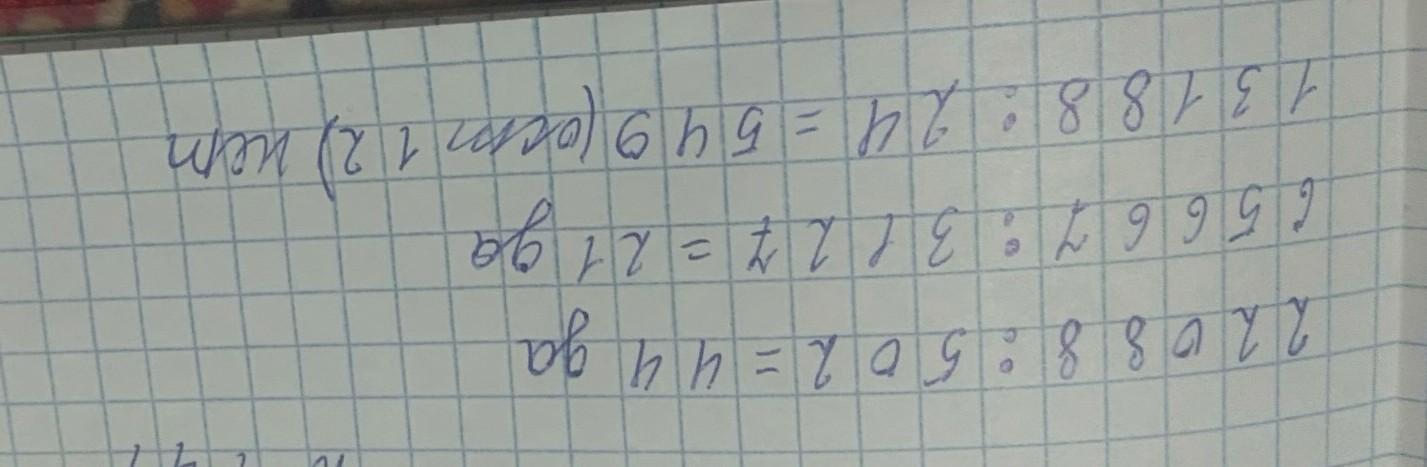 22088:502=44 да
65667:3127=21 да
13188:24=549(ост 12) нет